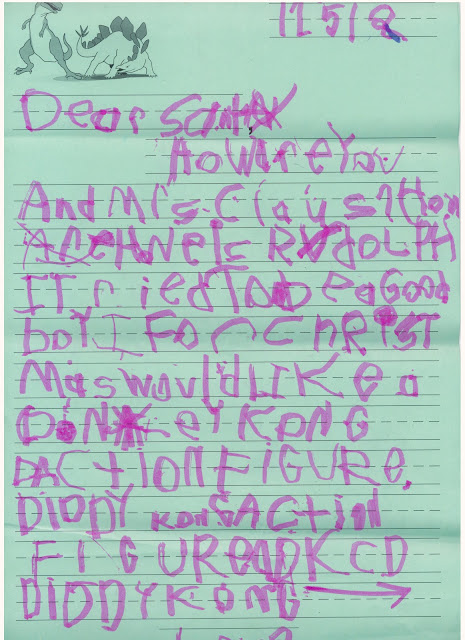 12 5 18
Dear SANtA
HoW are You
And Mrs. Claus
RUdOLPH
I Tried To be a Good
boY I For ChRIST
Mas would LIKe a
DONKeY KONG
ACtION FiGURE,
DIDDY KONG ACtION
FIGURE
DIDDY KONG →